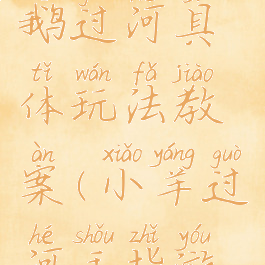 鹅过河具
tǐ wán fǎ jiào
体玩法教
àn xiǎo yáng guò
案(小羊过
hé shǒu zhǐ yóu
河手指游